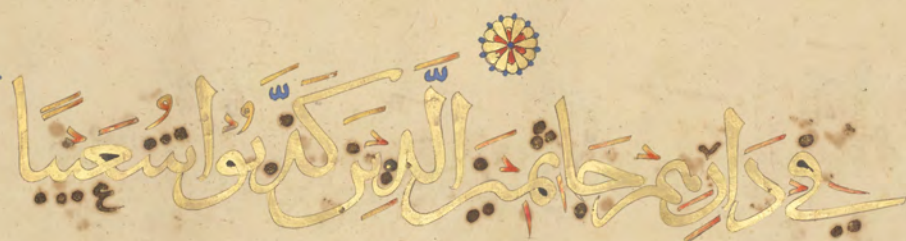 فِي دَارِهِمْ جَاثِمِينَ الَّذِينَ كَذَّبُوا شُعَيْبًا